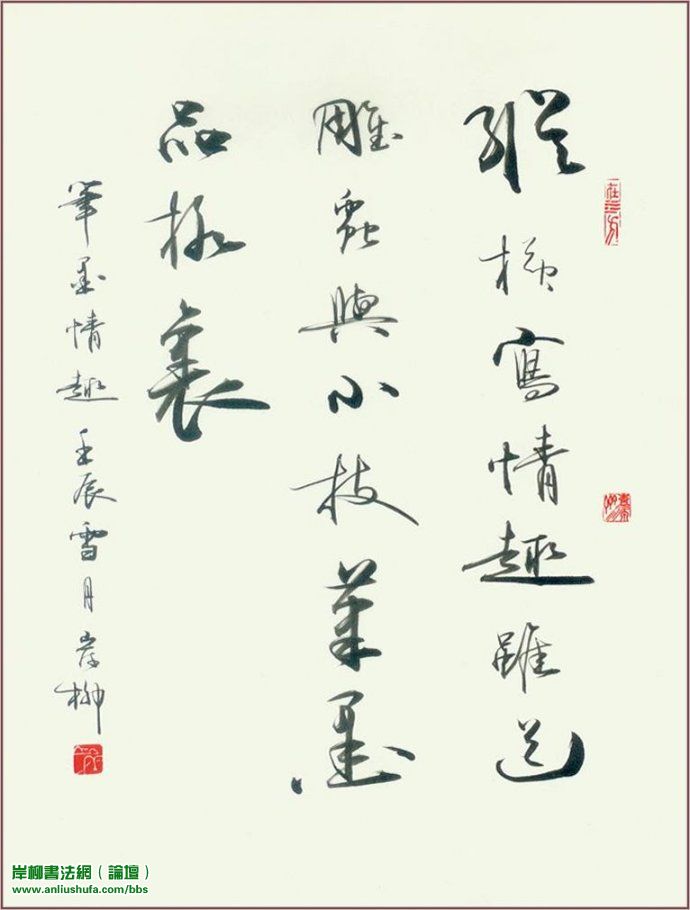 縱橫寫情趣雖道
雕蟲與小技筆墨
品極裏
筆墨情趣 壬辰雪月岸柳
岸柳書法網(論壇)
www.anliushufa.com/bbs